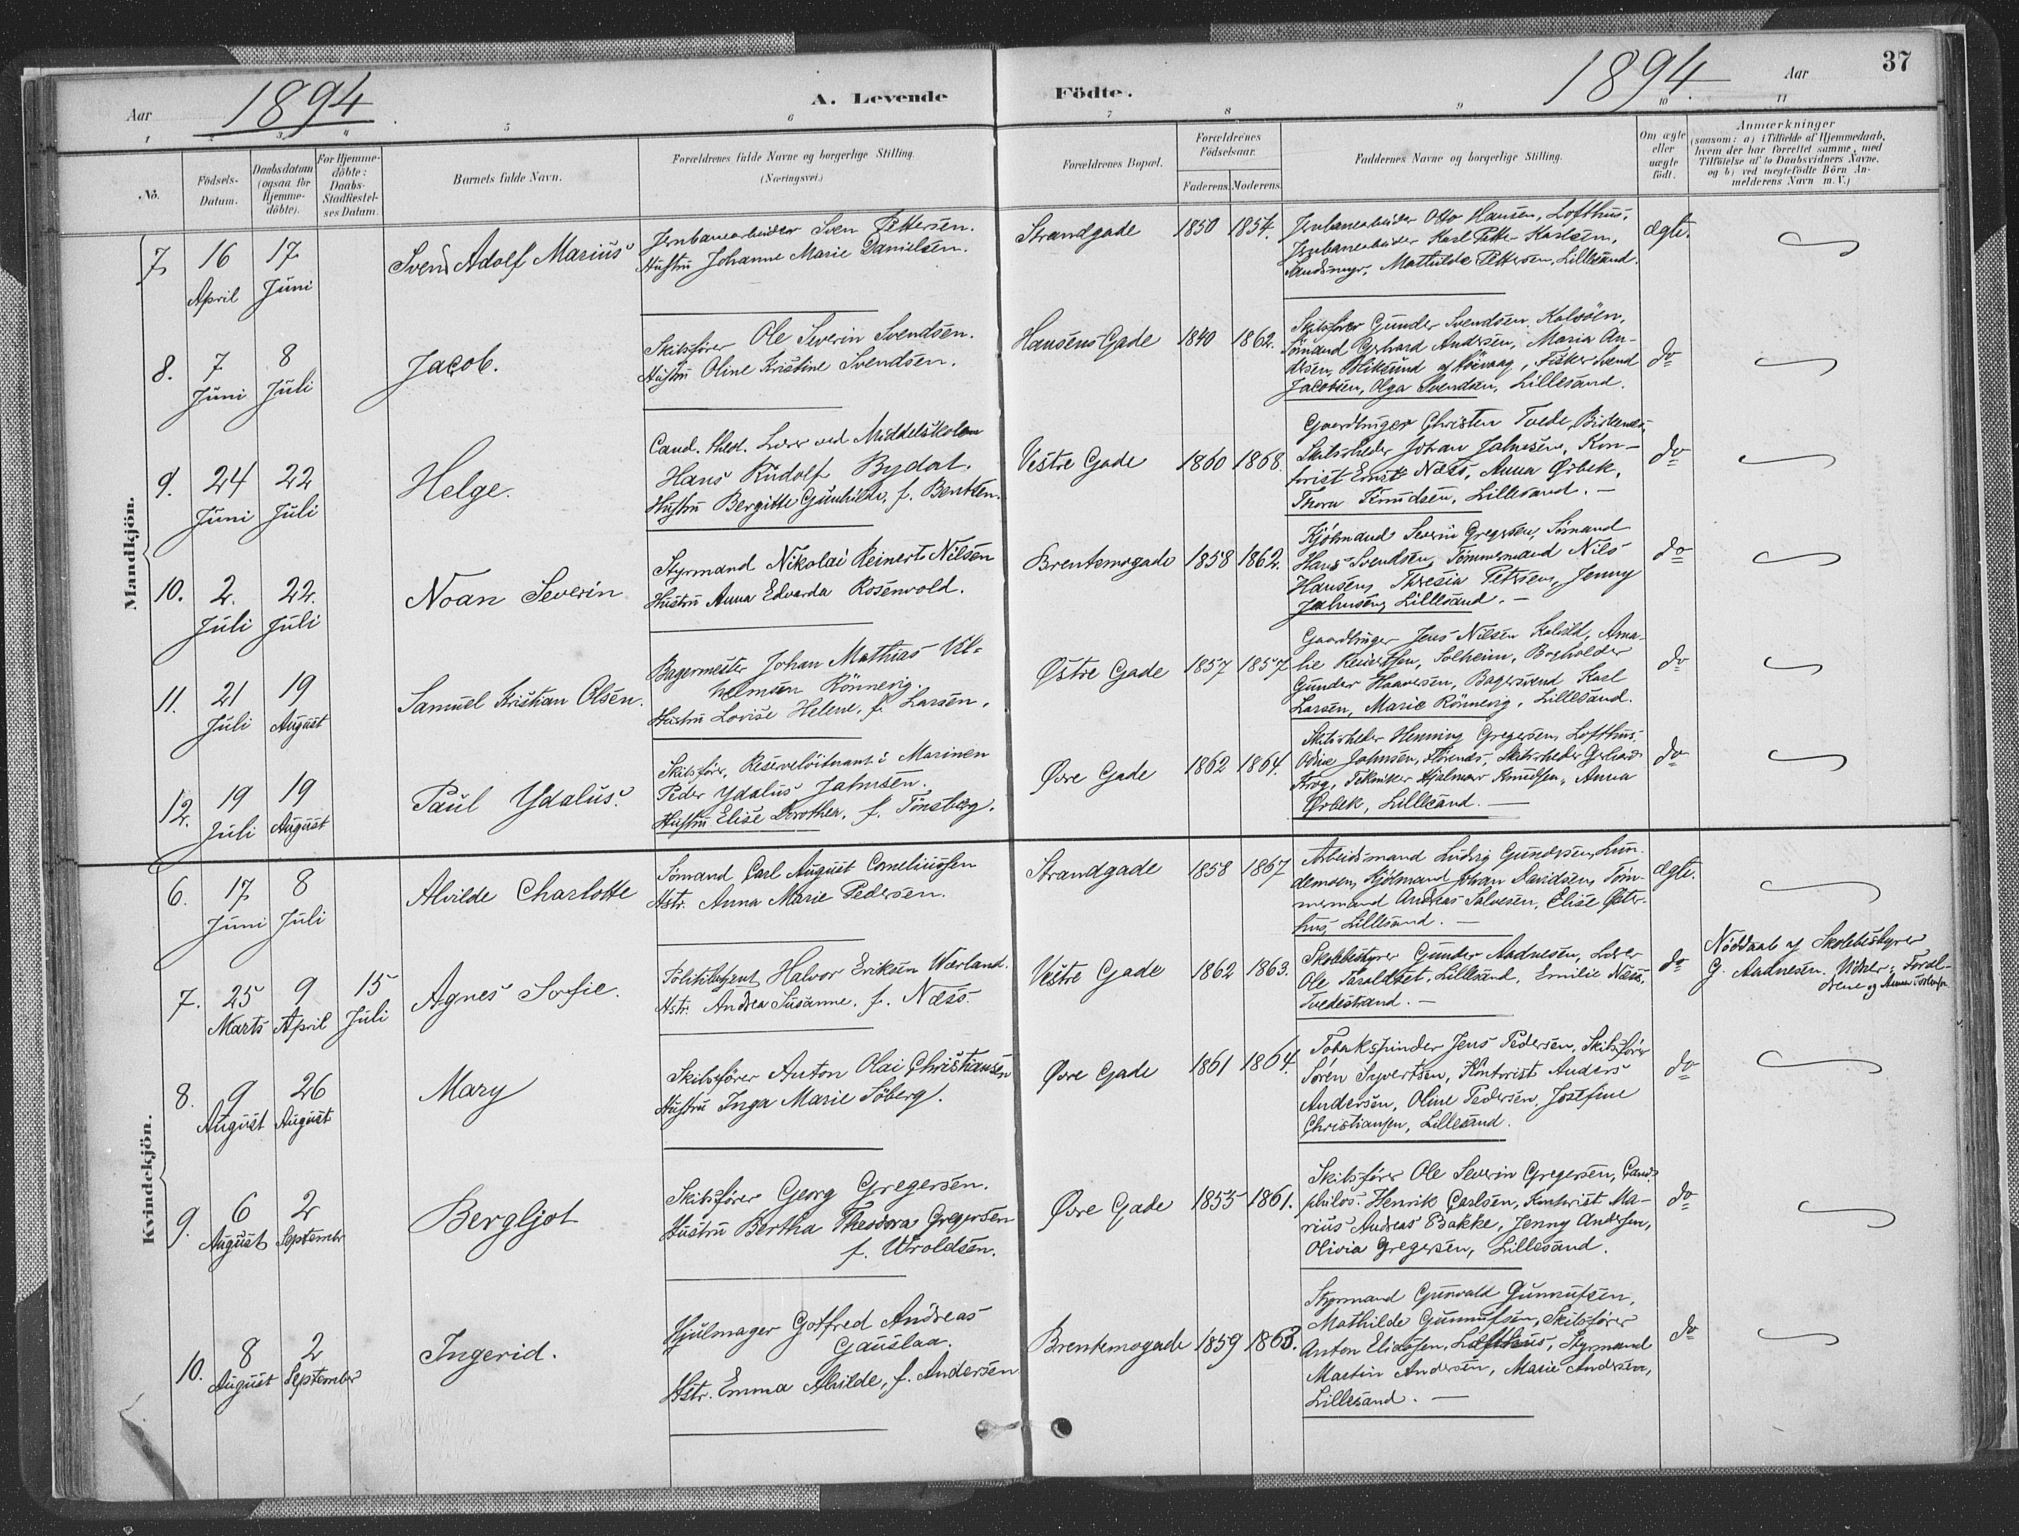 Aar 1894. A. Levende Födte. 1894. Aar 37
1 2 3 4 5 6 7 8 9 10 11
No. Födsels-Datum. Daabsdatum (ogsaa for Hjemmedöbte). For Hjemmedöbte: Daabs-Stadfæstelses Datum. Barnets fulde Navn. Forældrenes fulde Navne og borgerlige Stilling. (Næringsvei.) Forældrenes Bopæl. Forældrenes Födselsaar. Faderens. Moderens. Faddernes Navne og borgerlige Stilling. Om ægte eller uægte födt. Anmærkninger
(saasom: a) i Tilfælde af Hjemmedaab, hvem der har forrettet samme, med Tilföielse af to Daabsvidners Navne. og b) ved uægtefödte Börn Anmelderens Navn m. V.)
Mandkjön.
7. 16 April 17 Juni Svend Adolf Marius
Jernbanearbeider Sven Pettersen.
Hustru Johanne Marie Danielsen.
Strandgade 1850 1854.
Jernbanearbeider Otto Hansen, Lofthus,
Jernbanearbeider Karl Petter Karlsen,
Sandsmyr, Mathilde Pettersen, Lillesand.
ægte.
8. 7 Juni 8 Juli Jacob.
Skibsfører Ole Severin Svendsen.
Hustru Oline Kristine Svendsen.
Hansens Gade 1840 1862.
Skibsfører Gunder Svendsen, Kalvöen,
Sømand Gerhard Andersen, Maria An-
dersen, Bliksund af Høivaag, Fisker Svend
Jacobsen, Olga Svendsen, Lillesand.
do
9. 24 Juni 22 Juli Helge.
Cand. theol. Lærer ved Middelskolen
Hans Rudolf Bydal.
Hustru Bergitte Gunhilde, f. Bentsen.
Vestre Gade 1860 1868.
Gaardbruger Christen Tvede, Birkenæs,
Skibsrheder Johan Jahnsen, Kon-
torist Ernst Næss, Anna Ørbek,
Thora Knudsen, Lillesand. —
do
10. 2. Juli 22. Juli Noan Severin
Styrmand Nikolai Reinert Nilsen
Hustru Anna Edvarda Rosenvold.
Brentemogade 1858 1862.
Kjøbmand Severin Gregersen, Sømand
Hans Svendsen, Tømmermand Nils
Hansen, Thresia Petersen, Jenny
Jahnsen, Lillesand. —
do
11. 21 Juli 19 August Samuel Kristian Olsen.
Bagermester Johan Mathias Vil-
helmsen Rönnevig.
Hustru Lovise Helene, f. Larsen.
Østre Gade 1857 1857
Gaardbruger Jens Nilsen Kaldal, Ama-
lie Reiersen, Solheim, Bogholder
Gunder Haavesen, Bagersvend Karl
Larsen, Marie Rönnevig, Lillesand.
do
12. 19 Juli 19 August Paul Ydalus.
Skibsfører, Reserveløitnant i Marinen
Peder Ydalus Jahnsen.
Hustru Elise Dorothea, f. Tönsberg.
Øvre Gade 1862 1864.
Skibsrheder Henning Gregersen, Lofthus,
Odine Jahnsen, Strends, Skibsrheder Gerhard
Krog, Tekniker Hjalmar Knudsen, Anna
Ørbek, Lillesand. —
do
Kvindekjön.
6. 17 Juni 8 Juli Alvilde Charlotte
Sömand Carl August Corneliussen
Hstr. Anna Marie Pedersen.
Strandgade 1858 1867
Arbeidsmand Ludvig Gundersen, Lun-
demoen, Kjøbmand Johan Davidsen, Töm-
mermand Andreas Salvesen, Elise Øster-
hus, Lillesand. —
ægte.
7. 25 Marts 9 April 15 Juli Agnes Sofie.
Politibetjent Halvor Eriksen Værland.
Hstr. Andrea Susanne, f. Næss.
Vestre Gade 1862 1863.
Skolebestyrer Gunder Aadnesen, Lærer
Ole Taraldtet, Lillesand, Emilie Næss,
Tvedestrand. —
do
Nöddaab af Skolebestyrer
G. Aadnesen. Vidner: Foræl-
drene og
8. 9 August 26 August Mary
Skibsfører Anton Olai Christiansen
Hustru Inga Marie Söberg.
Øvre Gade 1861 1864.
Tobakspinder Jens Pedersen, Skibsfører
Sören Syvertsen, Kontorist Anders
Andersen, Oline Pedersen, Josefine
Christiansen, Lillesand.
do
9. 6 August 2 September Bergljot
Skibsfører Georg Gregersen.
Hustru Bertha Theodora Gregersen
f. Wroldsen.
Øvre Gade 1855 1861.
Skibsfører Ole Severin Gregersen, Cand.
philos. Henrik Carlsen, Kontorist Ma-
rius Andreas Bakke, Jenny Andersen,
Olivia Gregersen, Lillesand.
do
10. 8 August 2 September Ingerid.
Hjulmager Gotfred Andreas
Gauslaa.
Hstr. Emma Alvilde, f. Andersen
Brentemogade 1859 1863.
Styrmand Gunvald Gunnufsen,
Mathilde Gunnufsen, Skibsfører
Anton Eliassen, Lofthus, Styrmand
Martin Andersen, Marie Andersen,
Lillesand. —
do